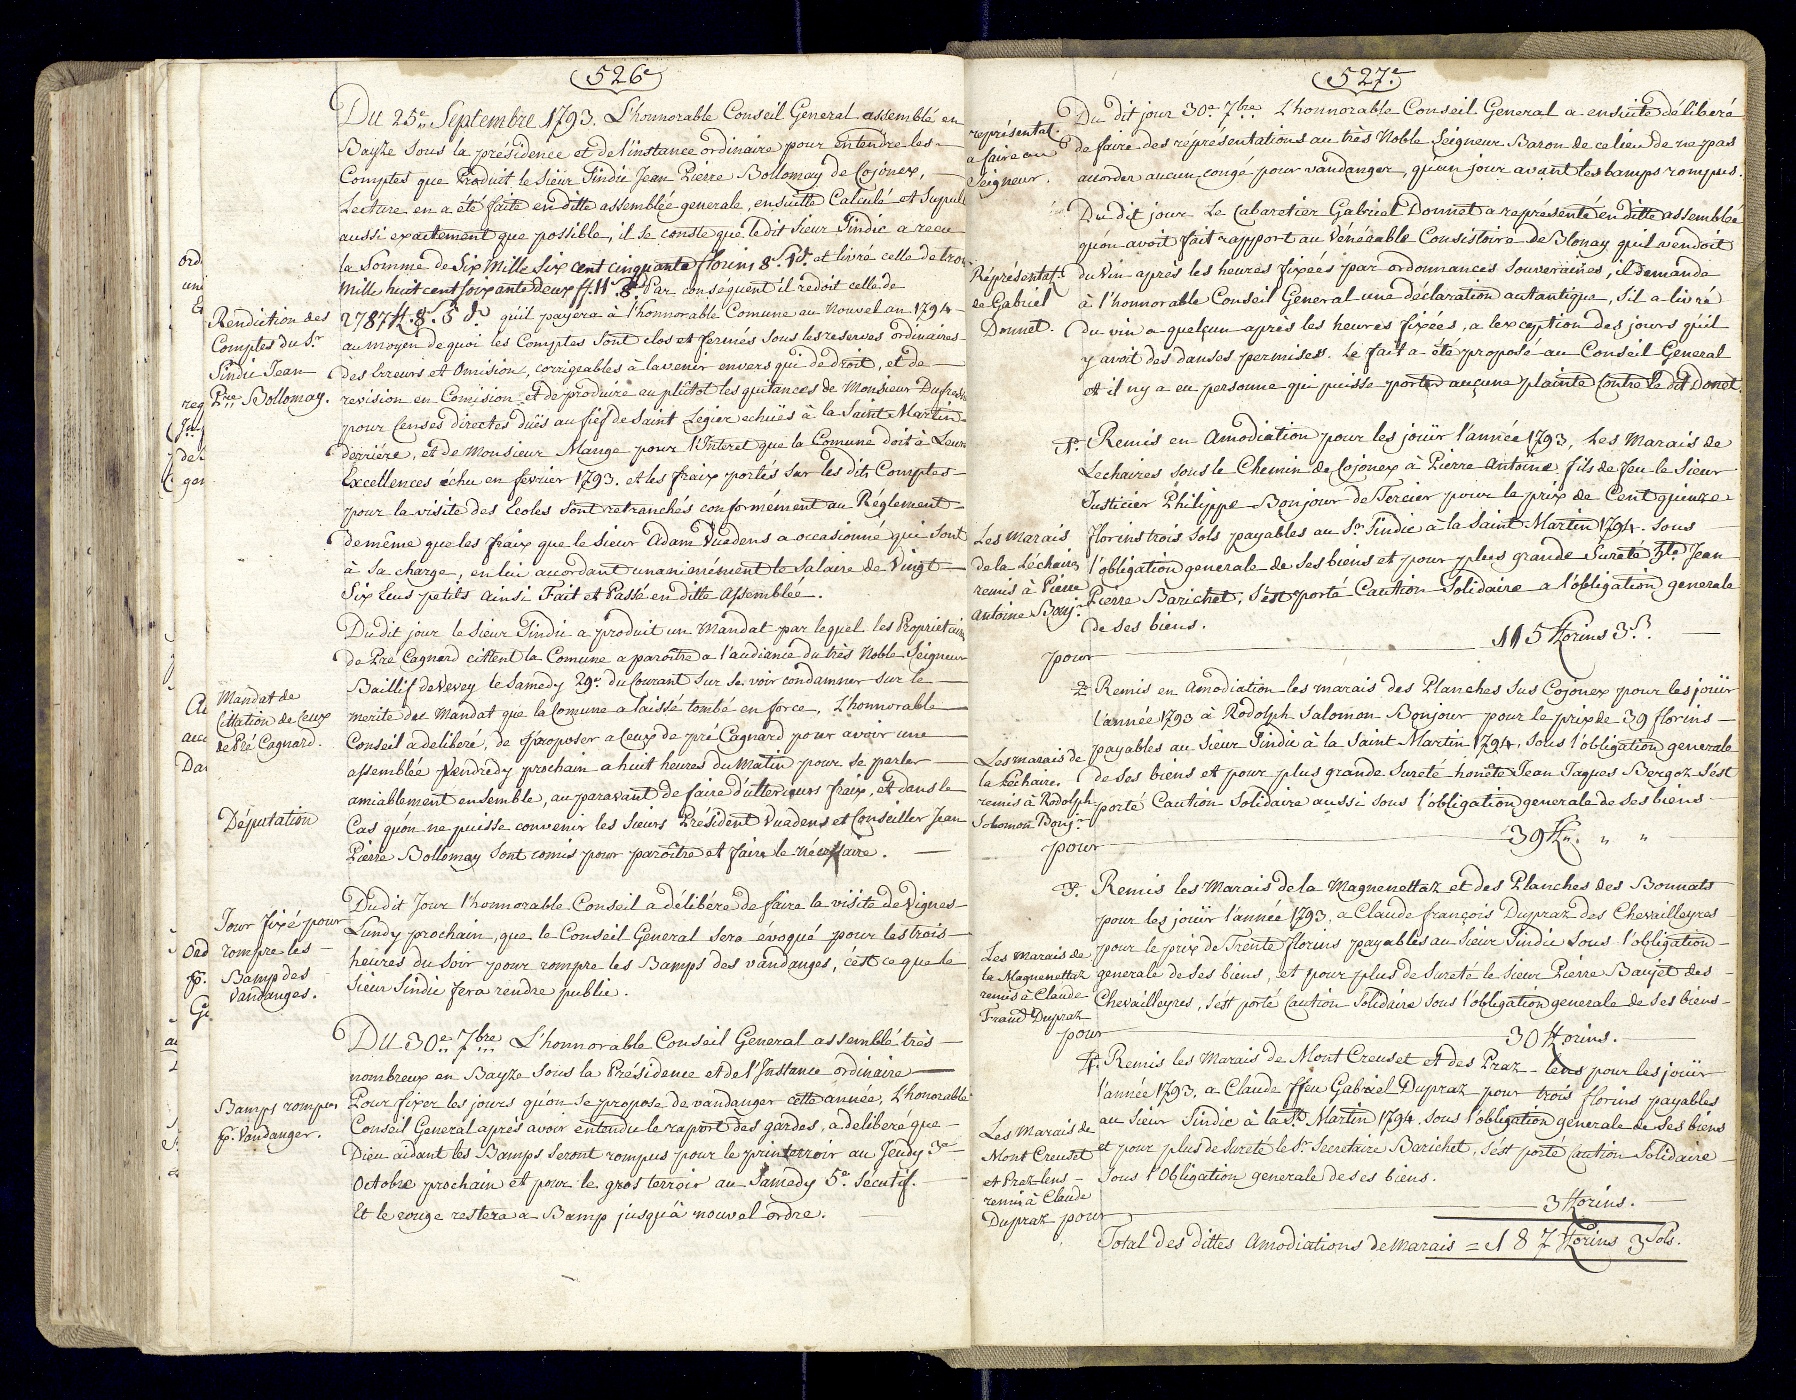 526e
Du 25e Septembre 1793. L'honnorable Conseil General assemblé en
Bayze sous la présidence et de l'instance ordinaire pour entendre les
Comptes que Produit le Sieur Sindic Jean Pierre Bollomay de Cojonex,
Lecture en a été faite en ditte assemblée generale, ensuitte Calculé et
aussi exactement que possible, il se conste que le dit Sieur Sindic a recu
la Somme de Six Mille Six cent cinquante florins 8 s. 1 d. et livré celle de trois
Mille huit cent soixante deux ff. 11 s. 8 d. Par consequent il redoit celle de
Rendiction des
Comptes du Sr
Sindic Jean
Pre Bollomay.
2787 ff. 8 s. 5 d. qu'il payera à l'honnorable Comune au Nouvel an 1794
au moyen de quoi les Comptes sont clos et fermés sous les reserves ordinaires
des Erreurs et Omision, corrigeables à lavenir envers qui de droit, et de
revision en Comision et de produire au plûtot les quitances de Monsieur
pour Censes directes dües au fief de Saint Legier echües à la Saint Martin
derriére, et de Monsieur Mange pour l'Interet que la Comune doit à Leurs
Excellences échu en fevrier 1793. et les fraix portés sur les dits Comptes
pour la visite des Ecoles sont retranchés conformément au Réglement
demême que les fraix que le Sieur Adam Vuedens a occasionné qui sont
à sa charge, en lui accordant unanimément le salaire de Vingt
Six Ecus petits ainsi Fait et Passé en ditte Assemblée.
Du dit jour le Sieur Sindic a produit un Mandat par lequel les Proprietaires
de Pre Cagnard cittent la Comune a paroître a l'audiance du très Noble Seigneur
Baillif de Vevey le Samedy 29e du Courant sur se voir condamner sur le
Mandat de
Cittation de Ceux
de Pré Cagnard.
merite du Mandat que la Comune a laissé tombé en force, L'honnorable
Conseil a deliberé, de proposer a Ceux de pré Cagnard pour avoir une
assemblée Vendredy prochain a huit heures du Matin pour se parler
amiablement ensemble, auparavant de faire d'ulterieurs fraix, et dans le
Députation
Cas qu'on ne puisse convenir les Sieurs Président Vuadens et Conseiller Jean
Pierre Bollomay sont comis pour paroître et faire le nécessaire.
Jour fixé pour
rompre les
Bamps des
Vandanges.
Du dit Jour l'honnorable Conseil a délibére de faire la visite de Vignes
Lundy prochain, que le Conseil General sera évoqué pour les trois
heures du Soir pour rompre les Bamps des vandanges, c'est ce que le
Sieur Sindic fera rendre public.
Du 30e 7bre L'honnorable Conseil General assemblé très
nombreux en Bayze sous la Présidence et de l'Instance ordinaire
Bamps rompus
p. Vandanger.
Pour fixer les jours qu'on se propose de vandanger cette année, L'honorable
Conseil General aprés avoir entendu le raport des gardes, a deliberé que
Dieu aidant les Bamps seront rompus pour le printerroir au Jeudy 3e
Octobre prochain et pour le gros terroir au Samedy 5e secutif.
Et le rouge restera a Bamp jusqu'à nouvel ordre.
527e
représentat.
a faire au
Seigneur.
Du dit jour 30e 7bre L'honnorable Conseil General a ensuite déliberé
de faire des réprésentations au très Noble Seigneur Baron de ce lieu de ne pas
accorder aucun congé pour vandanger, qu'un jour avant les bamps rompus.
Du dit jour Le Cabaretier Gabriel Donnet a représenté en ditte assemblée
qu'on avoit fait rapport au Vénérable Consistoire de Blonay qu'il vendoit
Réprésentat.
de Gabriel
Donnet.
du Vin aprés les heures fixées par ordonnances Souveraines, il demande
à l'honnorable Conseil General une déclaration autantique, s'il a livré
du vin a quelcun aprés les heures fixées, a lexception des jours qu'il
y avoit des danses permises. Le fait a été proposé au Conseil General
et il n'y a eu personne qui puisse porter aucune plainte Contre le dit Donet.
1o. Remis en Amodiation pour les joüir l'année 1793, Les Marais de
Lechaires sous le Chemin de Cojonex à Pierre Antoine fils de feu le Sieur
Justicier Philippe Bonjour de Tercier pour le prix de Cent quinze
Les Marais
de la Léchaire
remis à Pierre
Antoine Bonj.
florins trois sols payables au Sr Sindic à la Saint Martin 1794. sous
l'obligation generale de ses biens et pour plus grande Sureté Jean
Pierre Barichet, s'est porté Caution Solidaire a l'obligation generale
de ses biens.
pour 115 florins 3 s.
2o Remis en Amodiation les marais des Planches sus Cojonex pour les joüir
l'année 1793 à Rodolph Salomon Bonjour pour le prix de 39 florins
Les marais de
la Léchaire.
remis à Rodolph
Solomon Bonjr
payables au Sieur Sindic à la Saint Martin 1794, sous l'obligation generale
de ses biens et pour plus grande Sureté honête Jean Jaques Bergoz s'ést
porté Caution Solidaire aussi sous l'obligation generale de ses biens
pour 39 ff. " "
3o. Remis les Marais de la Magnenettaz et des Planches des Bonnats
pour les joüir l'année 1793, a Claude françois Dupraz des Chevailleyres
Les Marais de
la Magnenettaz
remis à Claude
Franc Dupraz
pour le prix de Trente florins payables au Sieur Sindic sous l'obligation
generale de ses biens, et pour plus de sureté le Sieur Pierre Baujet des
Chevailleyres, s'ést porté Caution Solidaire sous l'obligation generale de ses biens
pour 30 florins.
4o. Remis les Marais de Mont Creuset et des Praz-lens pour les joüir
l'année 1793, a Claude ffeu Gabriel Dupraz pour trois florins payables
Les Marais de
Mont Creuset
et Praz lens
remis à Claude
Dupraz
au Sieur Sindic à la St Martin 1794, sous l'obligation generale de ses biens
et pour plus de sureté le Sr Secretaire Barichet, s'ést porté Caution Solidaire
sous l'Obligation generale de ses biens.
pour 3 florins.
Total des dittes Amodiations de Marais = 187 florins 3 Sols.